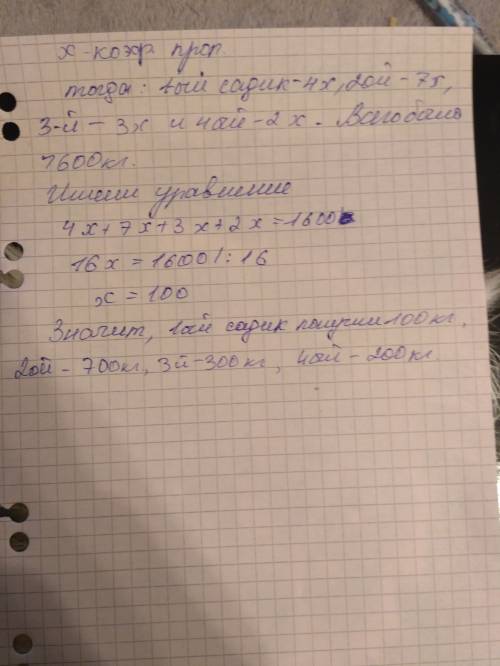 х - коэф. проп.
тогда: 1ый садик - 4х, 2ой - 7х,
3-й - 3х и 4ый - 2х. Всего было
1600кг.
Имеем уравнение
4х + 7х + 3х + 2х = 1600
16х = 1600 | : 16
х = 100
Значит, 1ый садик получил 100кг,
2ой - 700кг, 3й - 300кг, 4ый - 200кг.